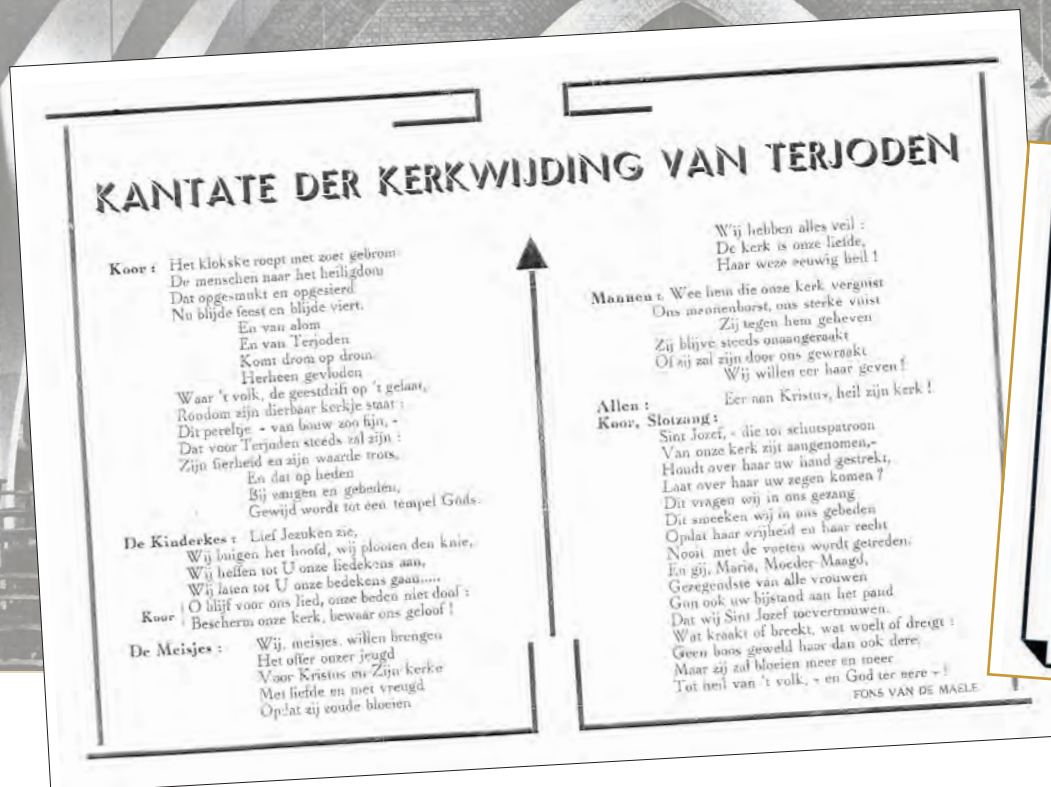 KANTATE DER KERKWIJDING VAN TERJODEN
Koor : Het klokske roept met zoet gebrom
De menschen naar het heiligdom
Dat opgesmukt en opgesierd
Nu blijde feest en blijde viert.
En van alom
En van Terjoden
Komt drom op drom
Herheen gevloden
Waar 't volk, de geestdrift op 't gelaat,
Rondom zijn dierbaar kerkje staat :
Dit pereltje - van bouw zoo fijn, -
Dat voor Terjoden steeds zal zijn :
Zijn fierheid en zijn waarde trots,
En dat op heden
Bij zangen en gebeden,
Gewijd wordt tot een tempel Gods.
De Kinderkes : Lief Jezuken zie,
Wij buigen het hoofd, wij plooien den knie,
Wij heffen tot U onze liedekens aan,
Wij laten tot U onze bedekens gaan.....
Koor : O blijf voor ons lied, onze beden niet doof :
Bescherm onze kerk, bewaar ons geloof !
De Meisjes : Wij, meisjes, willen brengen
Het offer onzer jeugd
Voor Kristus en Zijn kerke
Met liefde en met vreugd
Opdat zij zoude bloeien
Wij hebben alles veil :
De kerk is onze liefde,
Haar weze eeuwig heil !
Mannen : Wee hem die onze kerk verguist
Ons mannenborst, ons sterke vuist
Zij tegen hem geheven
Zij blijve steeds onaangeraakt
Of zij zal zijn door ons gewraakt
Wij willen eer haar geven !
Allen : Eer aan Kristus, heil zijn kerk !
Koor, Slotzang :
Sint Jozef, - die tot schutspatroon
Van onze kerk zijt aangenomen,-
Houdt over haar uw hand gestrekt,
Laat over haar uw zegen komen !
Dit vragen wij in ons gezang
Dit smeeken wij in ons gebeden
Opdat haar vrijheid en haar recht
Nooit met de voeten wordt getreden.
En gij, Maria, Moeder-Maagd,
Gezegendste van alle vrouwen
Gun ook uw bijstand aan het pand
Dat wij Sint Jozef toevertrouwen.
Wat kraakt of breekt, wat woelt of dreigt :
Geen boos geweld haar dan ook dere,
Maar zij zal bloeien meer en meer
Tot heil van 't volk, - en God ter eere - !
FONS VAN DE MAELE